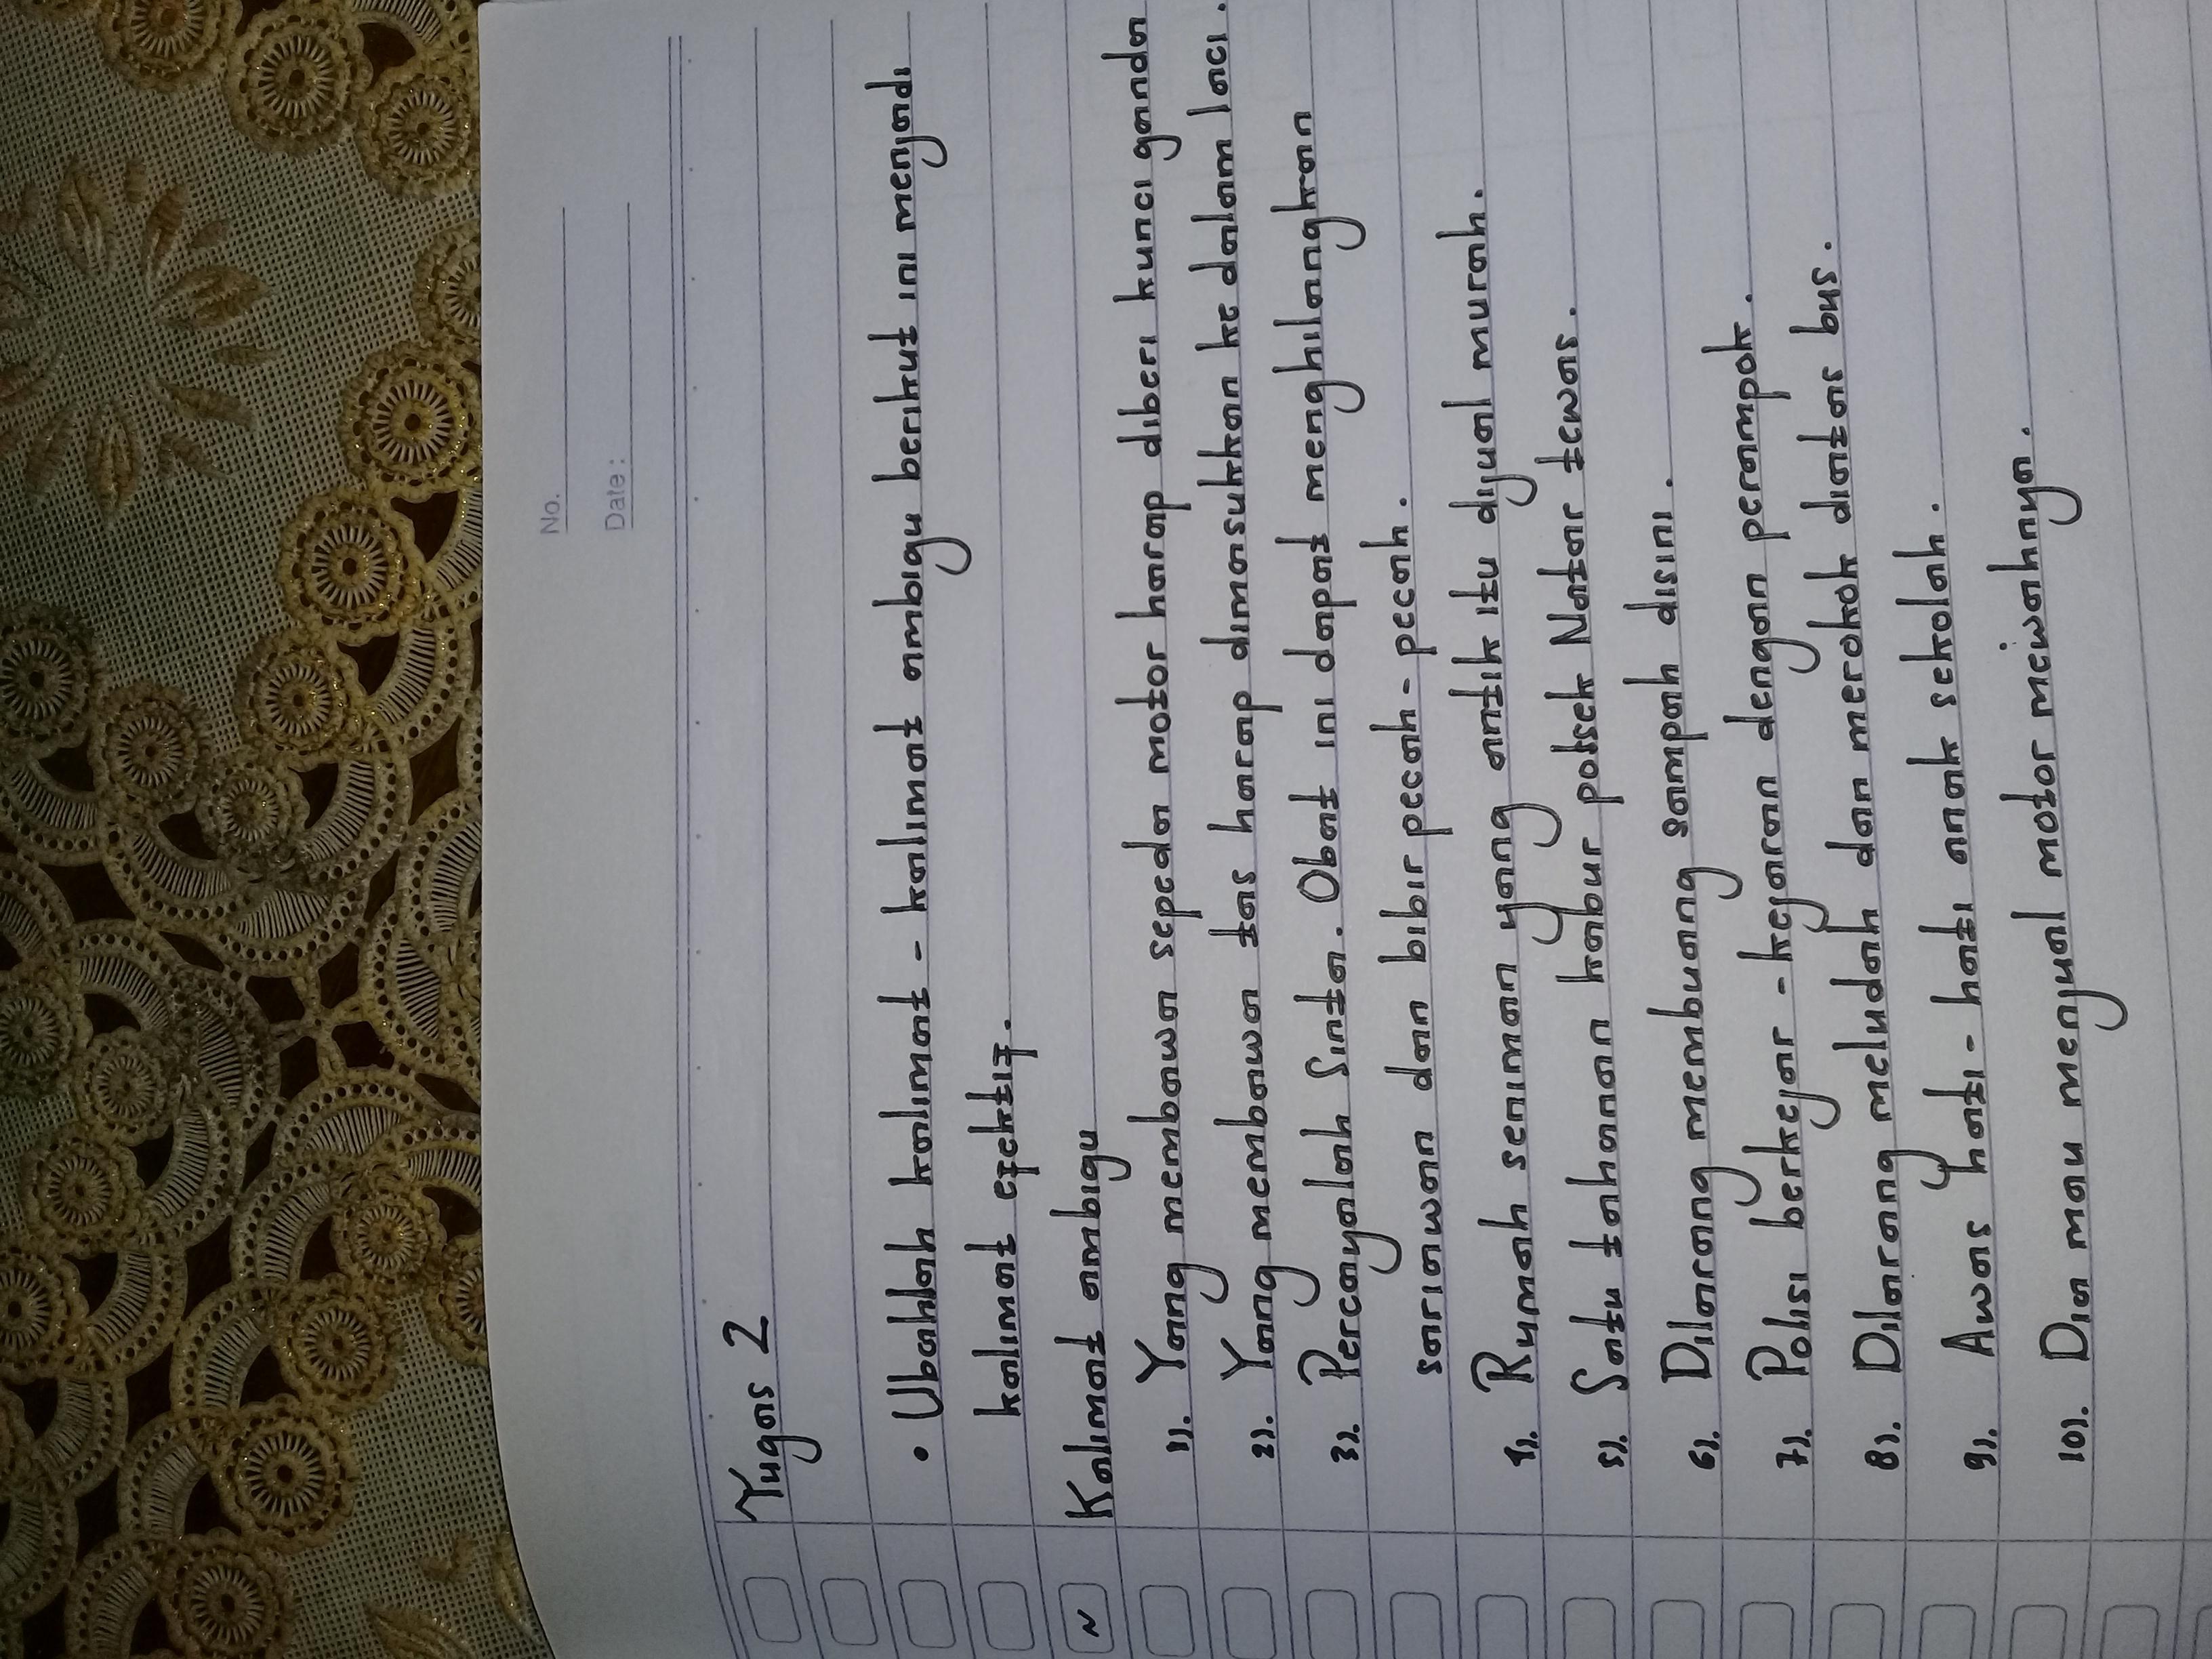 No.
Date:
Tugas 2
• Ubahlah kalimat - kalimat ambigu berikut ini menjadi
kalimat efektif.
~ Kalimat ambigu
1). Yang membawa sepeda motor harap diberi kunci ganda
2). Yang membawa tas harap dimasukkan ke dalam laci.
3). Percayalah Sinta. Obat ini dapat menghilangkan
sariawan dan bibir pecah - pecah.
4). Rumah seniman yang antik itu dijual murah.
5). Satu tahanan kabur polsek Natar tewas.
6). Dilarang membuang sampah disini.
7). Polisi berkejar - kejaran dengan perampok.
8). Dilarang meludah dan merokok diatas bus.
9). Awas hati - hati anak sekolah.
10). Dia mau menjual motor mewahnya.